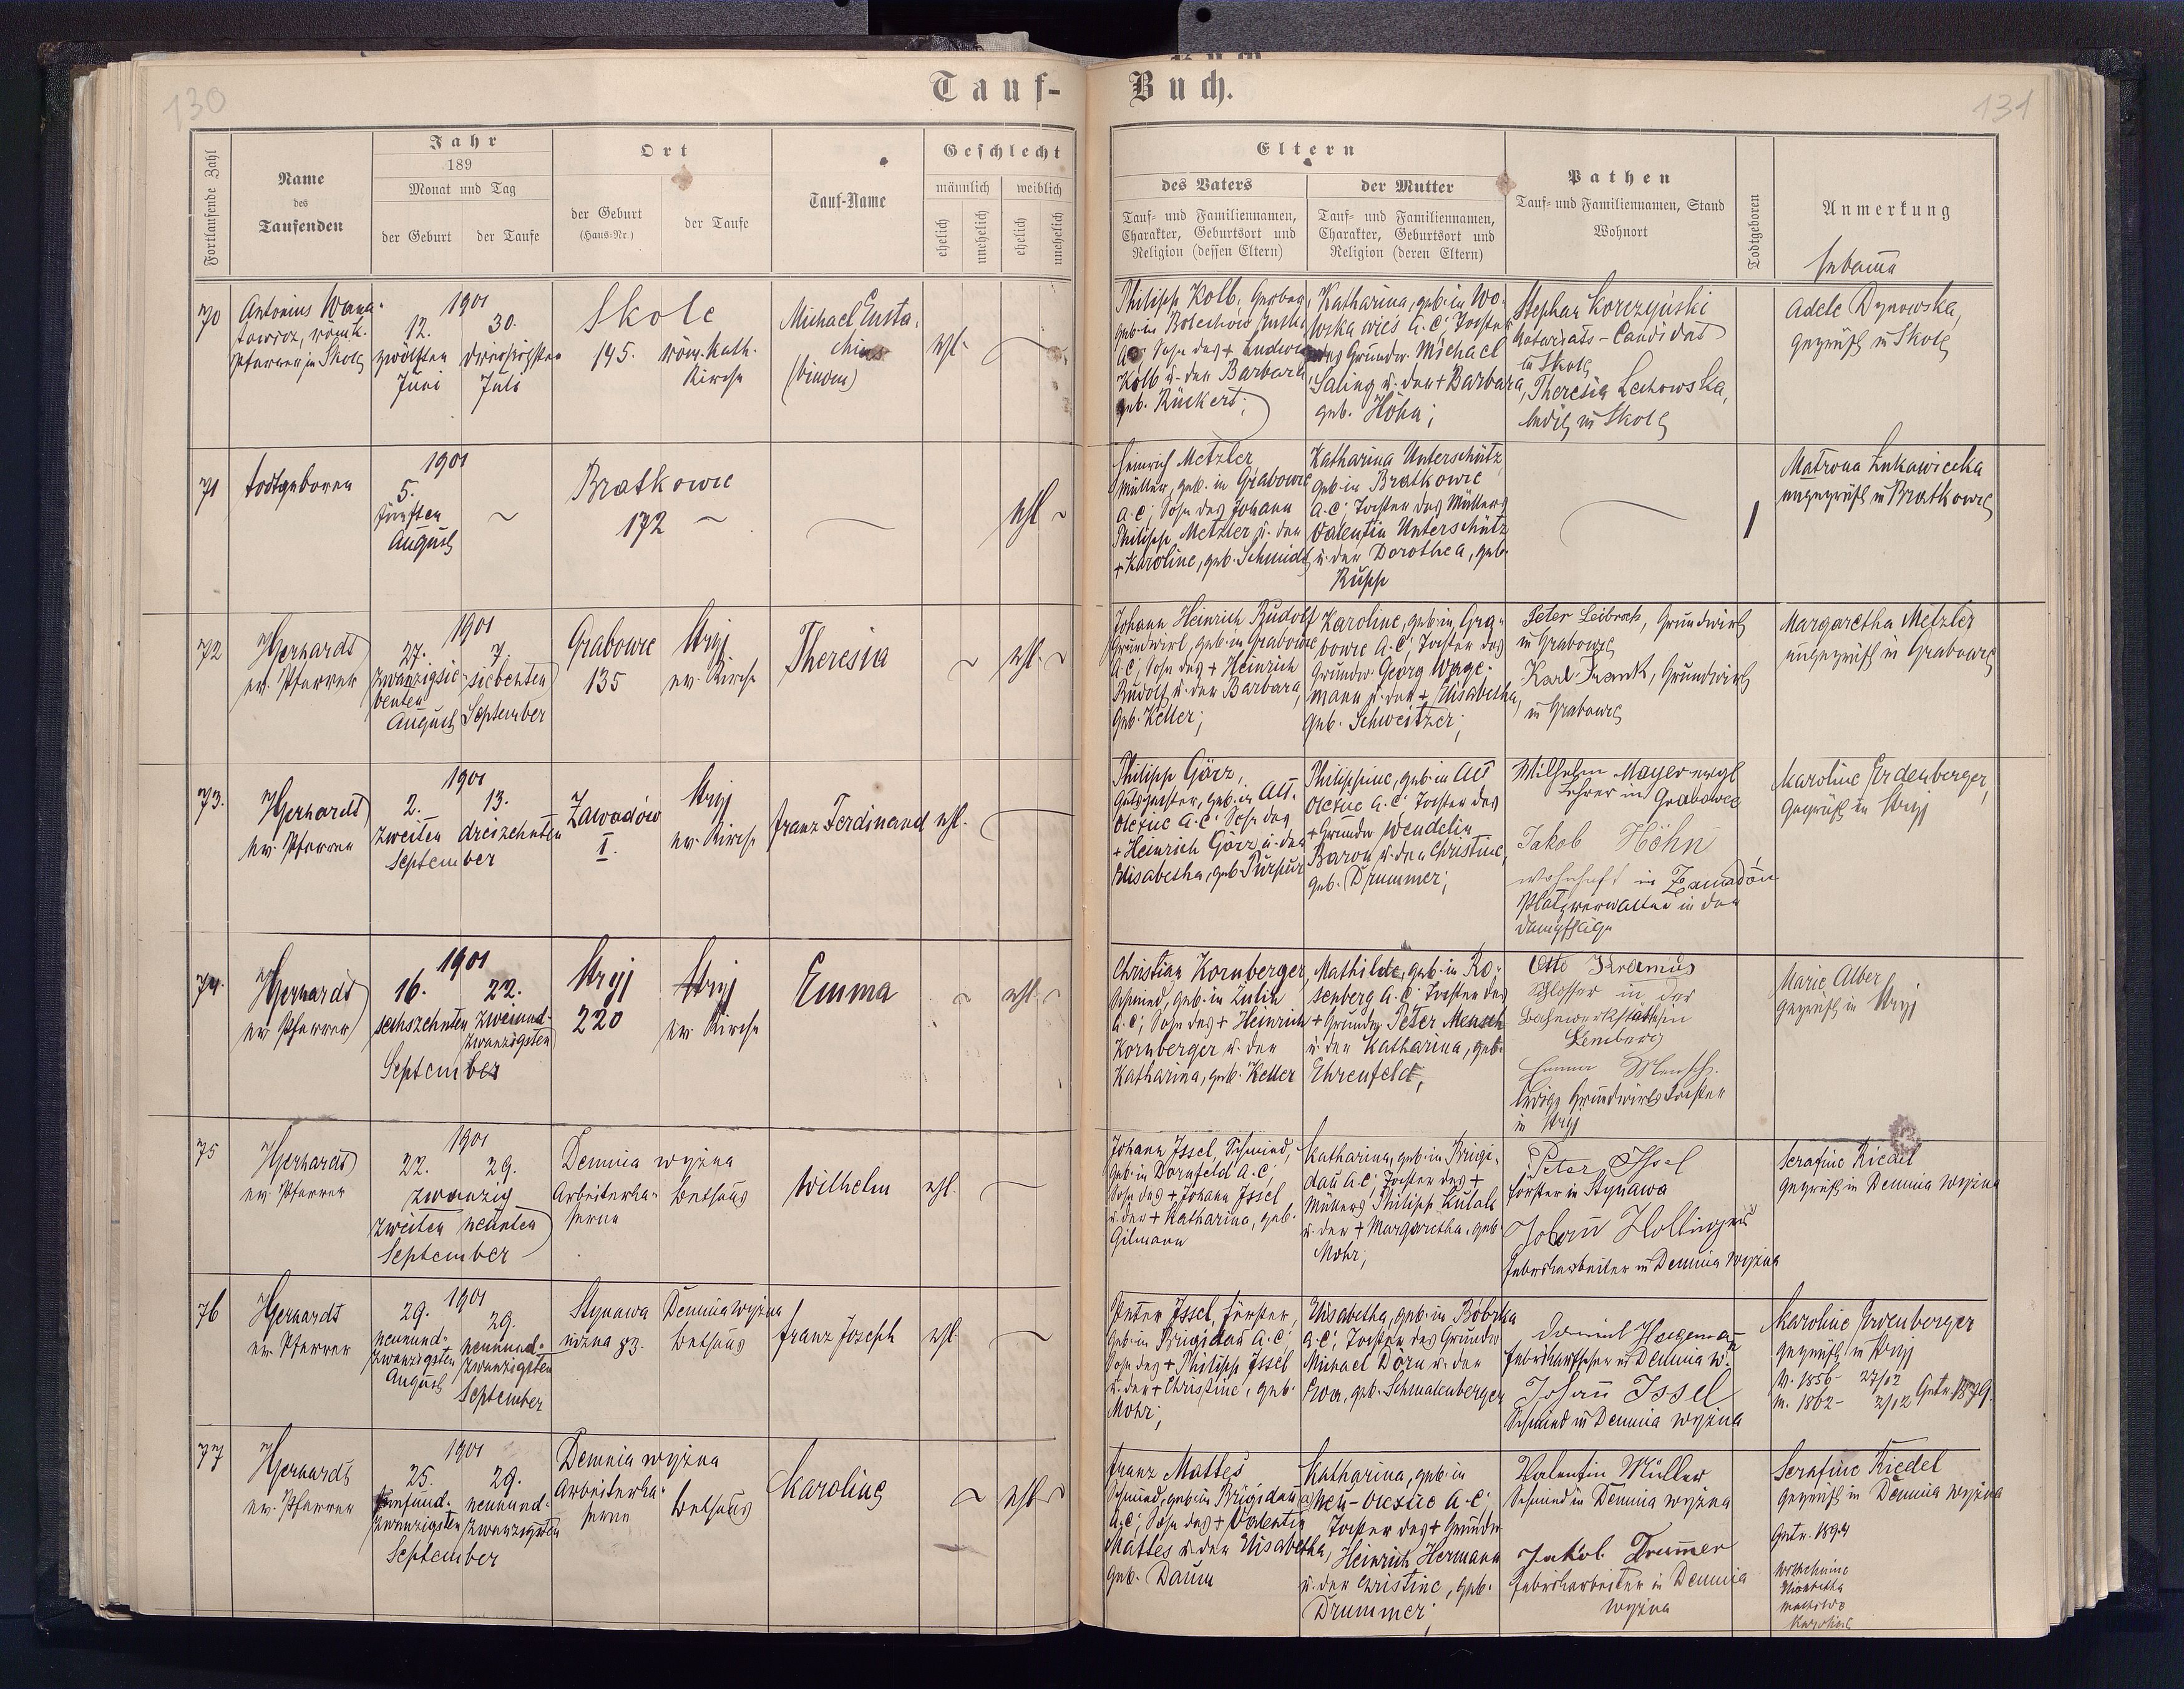 130
Tauf-
Buch.
131
Fortlaufende Zahl
Name
des
Taufenden
Jahr
189
Monat und Tag
der Geburt
der Taufe
Ort
der Geburt
(Haus-Nr.)
der Taufe
Tauf-Name
Geschlecht
männlich
weiblich
ehelich
unehelich
ehelich
unehelich
Eltern
des Vaters
Tauf- und Familiennamen,
Charakter, Geburtsort und
Religion (dessen Eltern)
der Mutter
Tauf- und Familiennamen,
Charakter, Geburtsort und
Religion (deren Eltern)
Pathen
Tauf- und Familiennamen, Stand
Wohnort
Todtgeboren
Anmerkung
Hebamme
70
Antonius
röm. k.
Pfarrer in Skole
1901
12.
zwölften
Juni
30.
dreissigsten
Juli
Skole
145.
röm. kath.
Kirche
Michael Eusta-
chius
(binom)
ehl.
Philipp Kolb, Gerber,
geb. in Bolechów
A.C; Sohn des + Ludwig
Kolb u. der Barbara
geb. Rückert;
Katharina, geb. in Wo-
A.C; Tochter
des Grundw. Michael
Saling u. der + Barbara,
geb. Höhn;
Stephan Korczyński
Notariats-Candidat
in Skole
Theresia Lechowska,
ledig in Skole
Adele Dynowska,
geprüft in Skole
71
todtgeboren
1901
5.
fünften
August
Bratkowce
172
ehl
Heinrich Metzler
Müller, geb. in Grabowce
A.C; Sohn des Johann
Philipp Metzler u. der
+ Karoline, geb. Schmidt
Katharina Unterschütz
geb. in Bratkowce
A.C; Tochter des Müllers
Valentin Unterschütz
u. der Dorothea, geb.
Rupp
1
Matrona Lukawiecka
ungeprüft in Bratkowce
72
Gerhardt
ev. Pfarrer
1901
27.
zwanzigsie-
benten
August
7.
siebenten
September
Grabowce
135
Stryj
ev. Kirche
Theresia
ehl.
Johann Heinrich Rudolf
Grundwirt, geb. in Grabowce
A.C; Sohn des + Heinrich
Rudolf u. der Barbara,
geb. Keller;
Karoline, geb. in Gra-
bowce A.C; Tochter des
Grundw. Georg Wage-
mann u. der + Elisabetha,
geb. Schweitzer;
Peter Leibrock, Grundwirt
in Grabowce
Karl Frank, Grundwirt
in Grabowce
Margaretha Metzler
ungeprüft in Grabowce
73.
Gerhardt
ev. Pfarrer
1901
2.
zweiten
13.
dreizehnten
September
Zawadów
I.
Stryj
ev. Kirche
Franz Ferdinand
ehl.
Philipp Görz,
geb. in Alt-
Olexuc A.C. Sohn des
+ Heinrich Görz u. der
Elisabetha, geb. Purpur
Philippine, geb. in Alt
Olexuc A.C. Tochter des
+ Grundw. Wendelin
Baron u. der Christine,
geb. Drummer;
Wilhelm Mayer evgl
Lehrer in Grabowce
Jakob Höhn
wohnhaft in Zawadów
Platzverwalter in der
Dampfsäge
Karoline Erdenberger,
geprüft in Stryj
74.
Gerhardt
ev. Pfarrer
1901
16.
sechszehnten
22.
zweiund-
zwanzigsten
September
Stryj
220
Stryj
ev. Kirche
Emma
ehl.
Christian Kornberger,
Schmied, geb. in Zulin
A.C; Sohn des + Heinrich
Kornberger u. der
Katharina, geb. Keller
Mathilde, geb. in Ro-
senberg A.C. Tochter des
+ Grundw. Peter Mensch
u. der Katharina, geb.
Ehrenfeld,
Otto Kromus
Schlosser in der
Bahnwerkstätte in
Lemberg
Emma Mensch.
ledige Grundwirtstochter
in Stryj
Marie Alber,
geprüft in Stryj
75
Gerhardt
ev. Pfarrer
1901
22.
29.
zwanzig
zweiten neunten
September
Demnia wyżna
Arbeiterka-
serne
Bethaus
Wilhelm
ehl.
Johann Issel, Schmied,
geb. in Dornfeld A.C;
Sohn des + Johann Issel
u. der + Katharina, geb.
Gilmann
Katharina, geb. in Brigi-
dau A.C; Tochter des +
Müllers Philipp Kulals
u. der + Margaretha, geb.
Mohr;
Peter Issel
Förster in Stynawa
Johann Hollinger
Fabriksarbeiter in Demnia wyżna
Serafine Riedel
geprüft in Demnia wyżna
76
Gerhardt
ev. Pfarrer
1901
29.
neunund-
zwanzigsten
August
29.
neunund-
zwanzigsten
September
Stynawa
niżna 83.
Demnia wyżna
Bethaus
Franz Joseph
ehl.
Peter Issel, Förster,
geb. in Brigidau A.C;
Sohn des + Philipp Issel
u. der + Christine, geb.
Mohr;
Elisabetha, geb. in Bóbrka
A.C; Tochter des Grundw.
Michael Dörn u. der
Eva, geb. Schmalenberger
Daniel Hagemann
in Demnia w.
Johann Issel
Schmied in Demnia wyżna
Karoline Erdenberger
geprüft in Stryj
V. 1856- 27/12
m. 1862- 2/12 Getr. 1879.
77
Gerhardt
ev. Pfarrer
1901
25.
fünfund-
zwanzigsten
29.
neunund-
zwanzigsten
September
Demnia wyżna
Arbeiterka-
serne
Bethaus
Karoline
ehl.
Franz Mattes
Schmied, geb. in Brigidau
A.C; Sohn des + Valentin
Mattes u. der Elisabetha,
geb. Daum
Katharina, geb. in
Neu-Olexuc A.C;
Tochter des + Grundw.
Heinrich Hermann
u. der Christine, geb.
Drummer;
Valentin Müller
Schmied in Demnia wyżna
Jakob Drummer
Fabriksarbeiter in Demnia
wyżna
Serafine Riedel
geprüft in Demnia wyżna
Getr. 1894
Wilhelmine
Elisabetha
Mathilde
Karoline